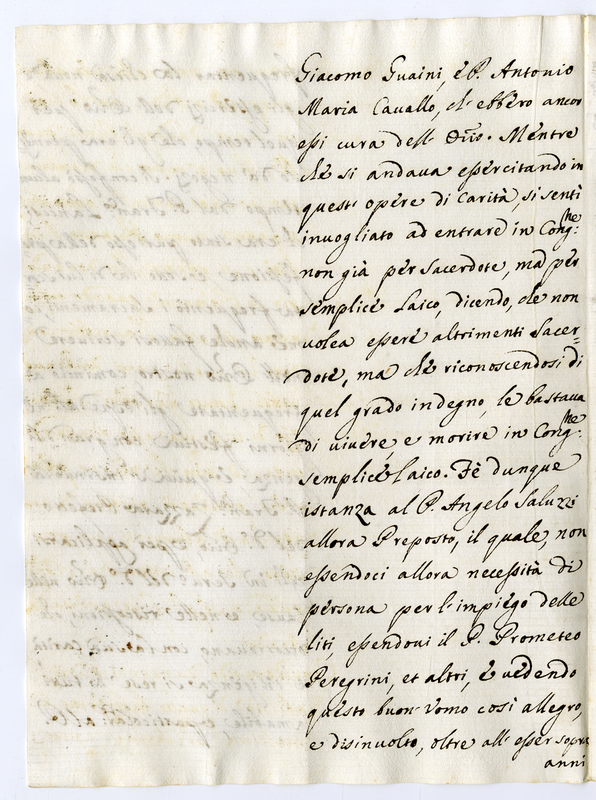 Giacomo Guaini, è P. Antonio
Maria Cavallo, ch' ebbero ancor
essi cura dell' Orio. Mentre
che si andava essercitando in
queste opere di Carità, si sentì
invogliato ad entrare in Conghe:
non già per sacerdote, ma per
semplice Laico, dicendo, che non
volea essere altrimenti Sacer=
dote, ma che riconoscendosi di
quel grado indegno, le bastava
di vivere, e morire in Conghe:
semplice laico. Fè dunque
istanza al P. Angelo Saluzzi
allora Preposto, il quale, non
essendoci allora necessità di
persona per l' impiego delle
liti, essendovi il P. Prometeo
Peregrini, et altri, è vedendo
questo buon Vomo così allegro,
e disinvolto, oltre all' esser sopra
anni